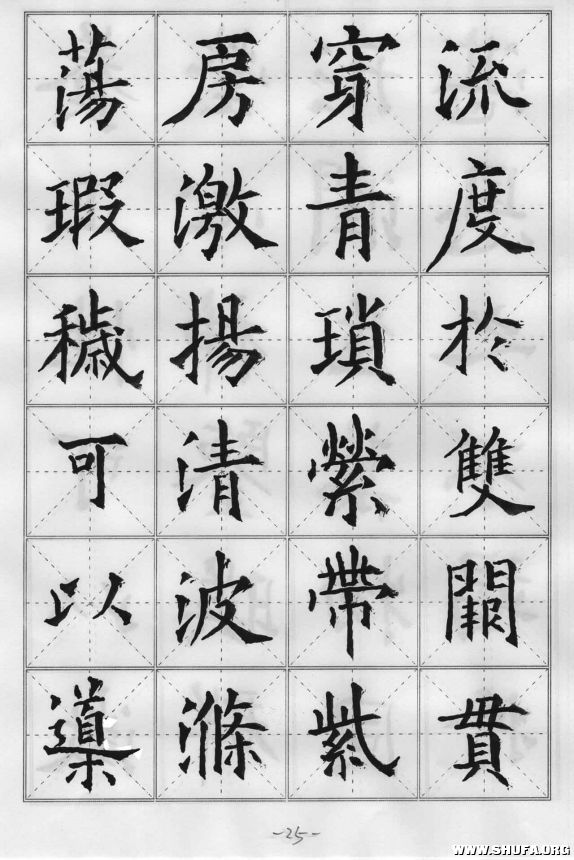 流度於雙闕貫
穿青瑣縈帶紫
房激揚清波滌
蕩瑕穢可以導
-25-
WWW.SHUFA.ORG